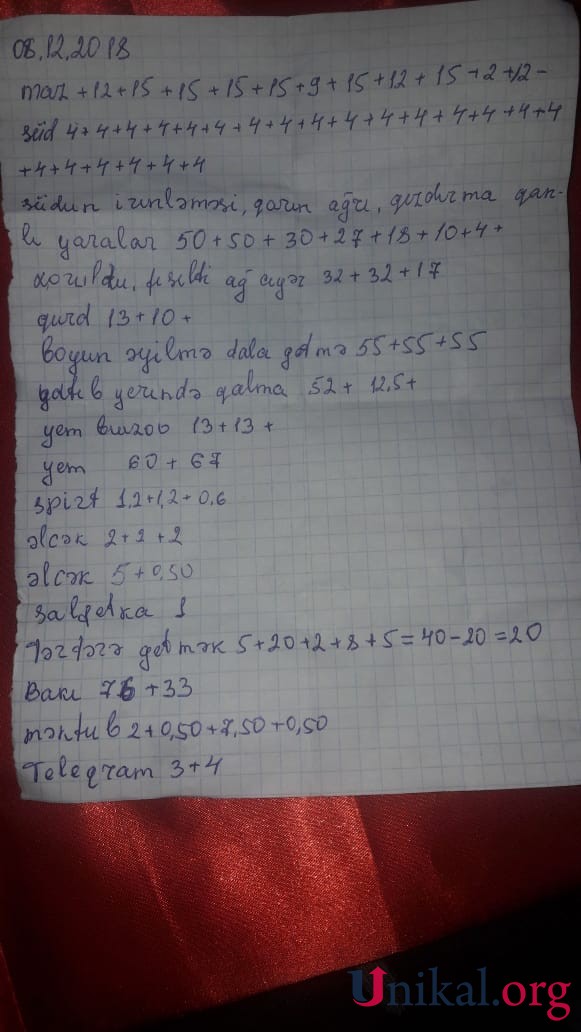 08.12.2018
maz +12+15+15+15+15+9+15+12+15+2+12-
süd 4+4+4+4+4+4+4+4+4+4+4+4+4+4+4+4
+4+4+4+4+4+4
südün irinləməsi, qarın ağrı, qızdırma qan-
lı yaralar 50+50+30+27+18+10+4+
fısıltı ağ ciyər 32+32+17
qurd 13+10+
boyun əyilmə dala getmə 55+55+55
yatıb yerində qalma 52+ 12.5+
yem 13+13+
yem 60+67
spirt 1,2+1,2+0.6
əlcək 2+2+2
əlcək 5+0,50
salfetka 1
Tərtərə getmək 5+20+2+8+5=40-20=20
Bakı 76+33
məktub 2+0,50+7,50+0,50
Teleqram 3+4
Unikal.org